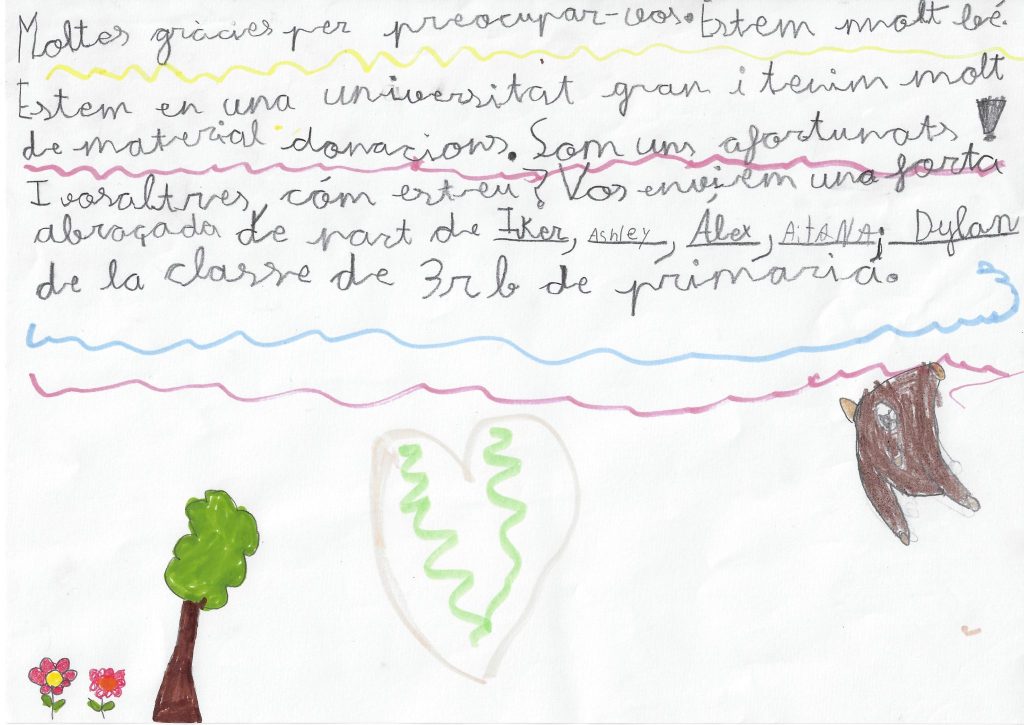 Moltes gràcies per preocupar-vos. Estem molt bé.
Estem en una universitat gran i tenim molt
de material donacions. Som uns afortunats!
I vosaltres, cóm esteu? Vos enviem una forta
abraçada de part de Iker, Ashley, Álex, AitANA i Dylan
de la classe de 3r b de primaria.